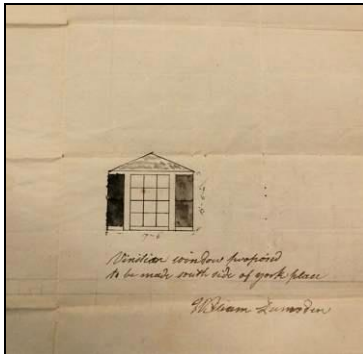 7-6
Vinitian window propos'd
to be made south side of york place
William Lumsden